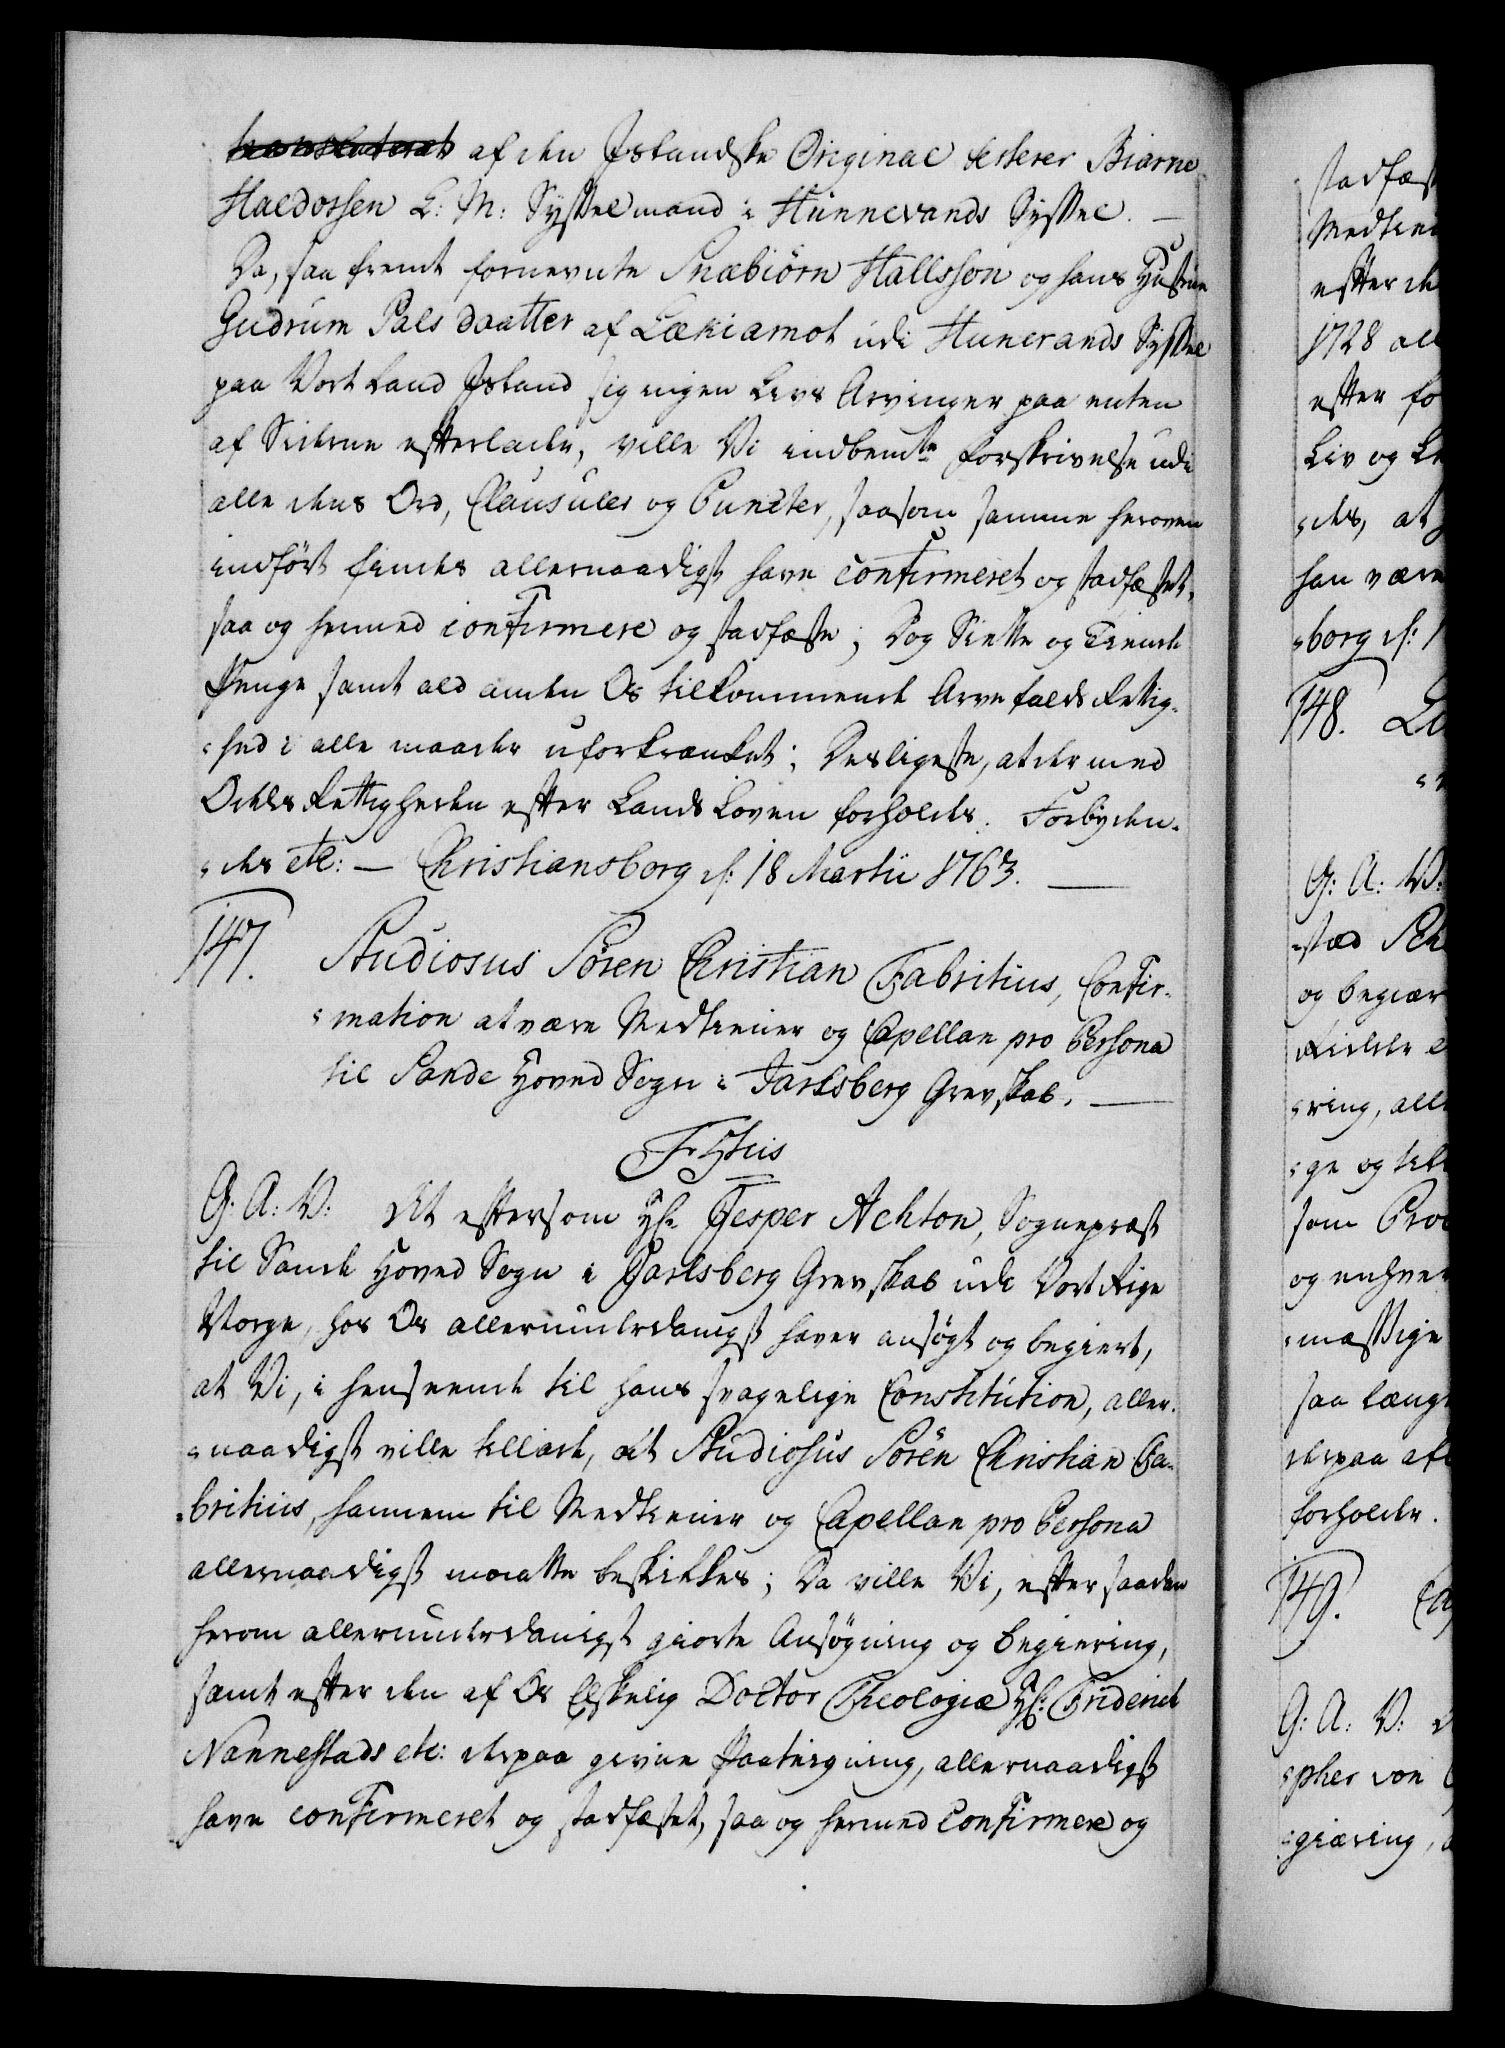 translaterat af den Jslandske Original testerer Biarne
Haldorssen L: M: Sysselmand i Hunnevands Syssel. —
Da, saa fremt fornevnte Snæbiörn Hallsson og hans Hustrue
Gudrum Pals daatter af Lækiamot udi Hunevands Syssel
paa Vort Land Jsland sig ingen Livs Arvinger paa enten
af Siderne efterlader, ville Vi indbemte forskrivelse udi
alle dens Ord, Clausuler og Puncter, saasom samme heroven
indført findes allernaadigst have confirmeret og stadfæstet,
saa og hermed confirmere og stadfæste; Dog Siette og Tiende
Penge samt ald anden Os tilkommende Arvefalds Rettig-
-hed i alle maader uforkrænket; Desligeste, at der med
Odels Rettigheden efter Lands Loven forholdes. Forbyden-
-des etc: — Christiansborg d: 18 Martii 1763. —
147. Studiosus Søren Christian Fabritius, Confir-
-mation at være Medtiener og Capellan pro Persona
til Sande Hoved Sogn i Jarlsberg Grevskab. —
G: A: V: At eftersom Hr Jesper Achton, Sognepræst
til Sande Hoved Sogn i Jarlsberg Grevskab udi Vort Rige
Norge, hos Os allerunderdanigst haver ansøgt og begiert,
at Vi, i henseende til hans svagelige Constitution, aller-
-naadigst ville tillade, at Studiosus Sören Christian Fa-
-britius, hannem til Medtiener og Capellan pro Persona
allernaadigst maatte beskikkes; Da ville Vi, efter saadan
herom allerunderdanigst giorte Ansøgning og begiering,
samt efter den af Os Elskelig Doctor Theologiæ Hr: Friderich
Nannestads etc: derpaa givne Paategning, allernaadigst
have confirmeret og stadfæstet, saa og hermed confirmere og
stadfæst
Medtien
efter de
1728 all
efter fo
Liv og Le
-des, at
han være
-borg d: 1
148.
G: A: V:
og begiær
-ring, all
-ge og
som Pro
og enhver
-mæssige
saa længe
derpaa
forholder.
149.
G: A: V:
-pher von
-giæring,